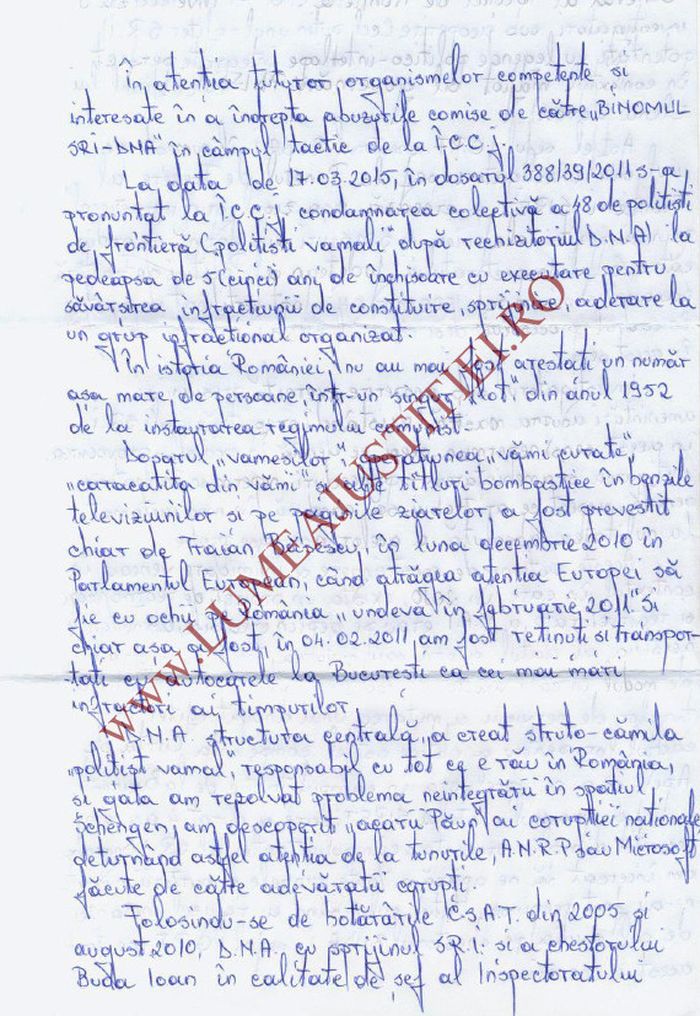 În atentia tuturor organismelor competente si
interesate în a îndrepta abuzurile comise de către „BINOMUL
SRI-DNA" în câmpul tactic de la Î.C.C.J.
La data de 17.03.2015, în dosarul 388/39/2011 s-a
pronuntat la Î.C.C.J. condamnarea colectivă a 48 de politisti
de frontieră („politisti vamali" după rechizitoriul D.N.A) la
pedeapsa de 5(cinci) ani de închisoare cu executare pentru
săvârsirea infractiunii de constituire, sprijinire, aderare la
un grup infractional organizat.
În istoria României nu au mai fost arestati un număr
asa mare de persoane într-un singur „lot" din anul 1952
de la instaurarea regimului comunist.
Dosarul „vamesilor", operatiunea „vămi curate",
„caracatita din vămi" si alte titluri bombastice în benzile
televiziunilor si pe paginile ziarelor, a fost prevestit
chiar de Traian Băsescu, în luna decembrie 2010 în
Parlamentul European, când atrăgea atentia Europei să
fie cu ochii pe România „undeva în februarie, 2011". Si
chiar asa a fost, în 04.02.2011 am fost retinuti si transpor-
tati cu autocarele la Bucuresti ca cei mai mari
infractori ai timpurilor.
D.N.A. structura centrală, a creat struto-cămila
„politist vamal", responsabil cu tot ce e rău în România,
si gata am rezolvat problema neintegrării în spatiul
Schengen, am descoperit „acarii Păun" ai coruptiei nationale
deturnând astfel atentia de la tunurile, A.N.R.P sau Microsoft
făcute de către adevăratii corupti.
Folosindu-se de hotărârile C.S.A.T. din 2005 si
august 2010, D.N.A. cu sprijinul S.R.I. si a chestorului
Buda Ioan în calitate de sef al Inspectoratului
www.LUMEAJUSTITIEI.RO